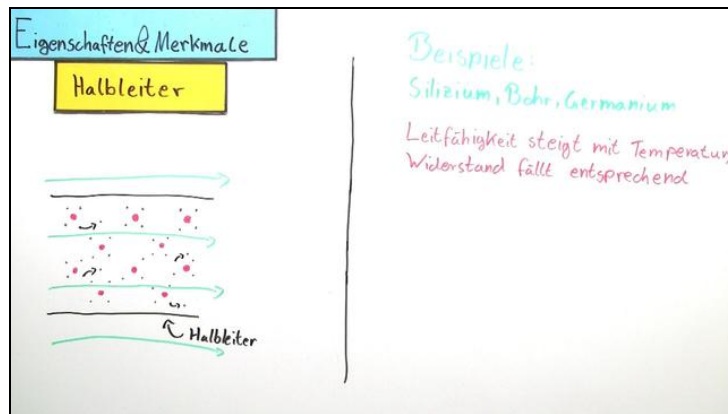 Eigenschaften & Merkmale
Halbleiter
Halbleiter
Beispiele:
Silizium, Bohr, Germanium
Leitfähigkeit steigt mit Temperatur,
Widerstand fällt entsprechend